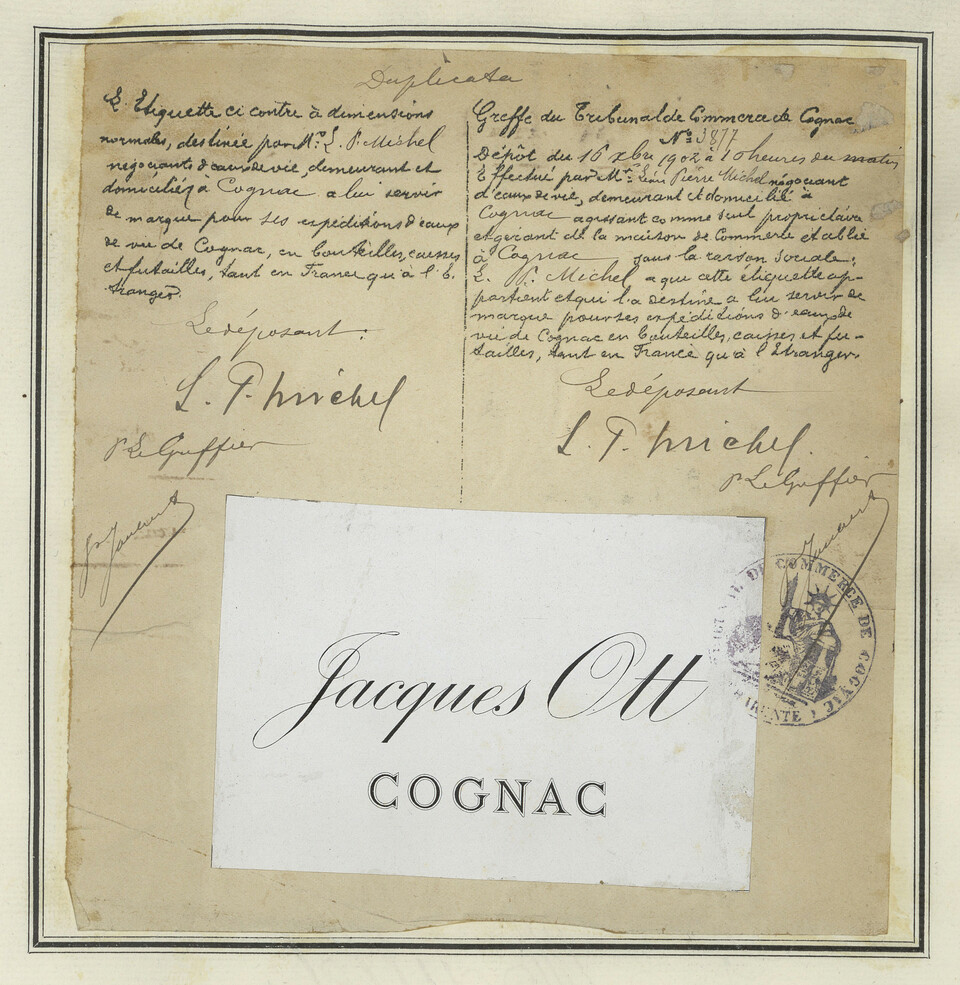 Duplicata
L'Etiquette ci contre à dimensions
normales, destinée par Mr. L. P. Michel
négociant d'eaux de vie, demeurant et
domicilié à Cognac a lui servir
de marque pour ses expéditions d'eaux
de vie de Cognac, en bouteilles, caisses
et futailles, tant en France qu'à l'E-
tranger.
Le déposant.
L. P. Michel
Pr Le Greffier
Greffe du Tribunal de Commerce de Cognac
No. 3877
Dépôt du 16 xbre 1902 à 10 heures du matin
Effectué par Mr. Léon Pierre Michel négociant
d'eaux de vie, demeurant et domicilié à
Cognac agissant comme seul propriétaire
et gérant de la maison de Commerce établie
à Cognac sous la raison sociale:
L. P. Michel a que cette étiquette ap-
partient et qu'il l'a destiné a lui servir de
marque pour ses expéditions d'eaux de
vie de Cognac en bouteilles, caisses et fu-
tailles, tant en France qu'à l'Etranger.
Le déposant
L. P. Michel.
Pr Le Greffier
DE COMMERCE DE COGNAC
Jacques Ott
COGNAC